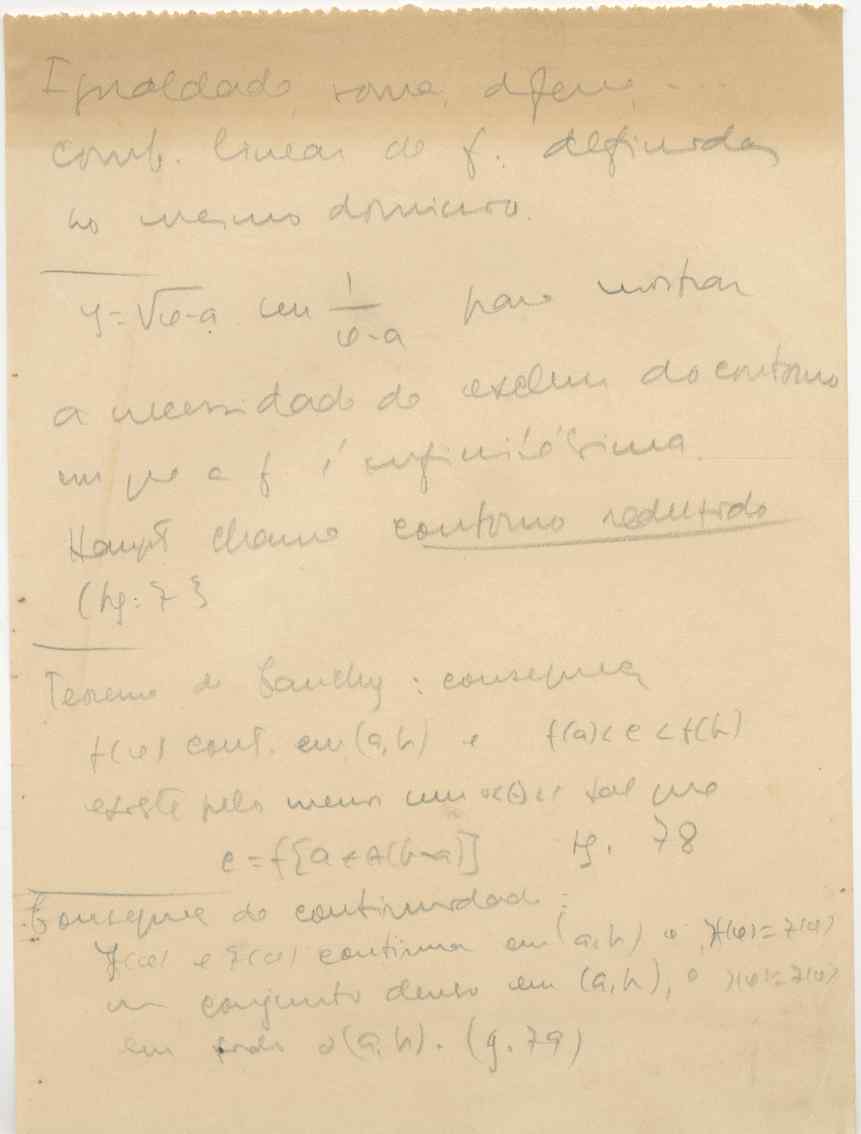 Igualdade, soma, difere, ...
comb. linear de f. definidas
no mesmo dominio.
y=√x-a em 1/x-a para mostrar
a necessidade de excluir do contorno
em que a f é infinitésima.
Haupt chama contorno reduzido
(Pg: 7
Teorema de Cauchy: consequencia
f(x) cont. em (a,b) e f(a)<c<f(b)
existe pelo menos um 0<θ<1 tal que
c=f[a+θ(b-a)] Pg. 78
Conseque de continuidade:
f(x) e g(x) continua em (a,b) e
um conjunto denso em (a,b), é
em todo o (a,b). (g. 79)